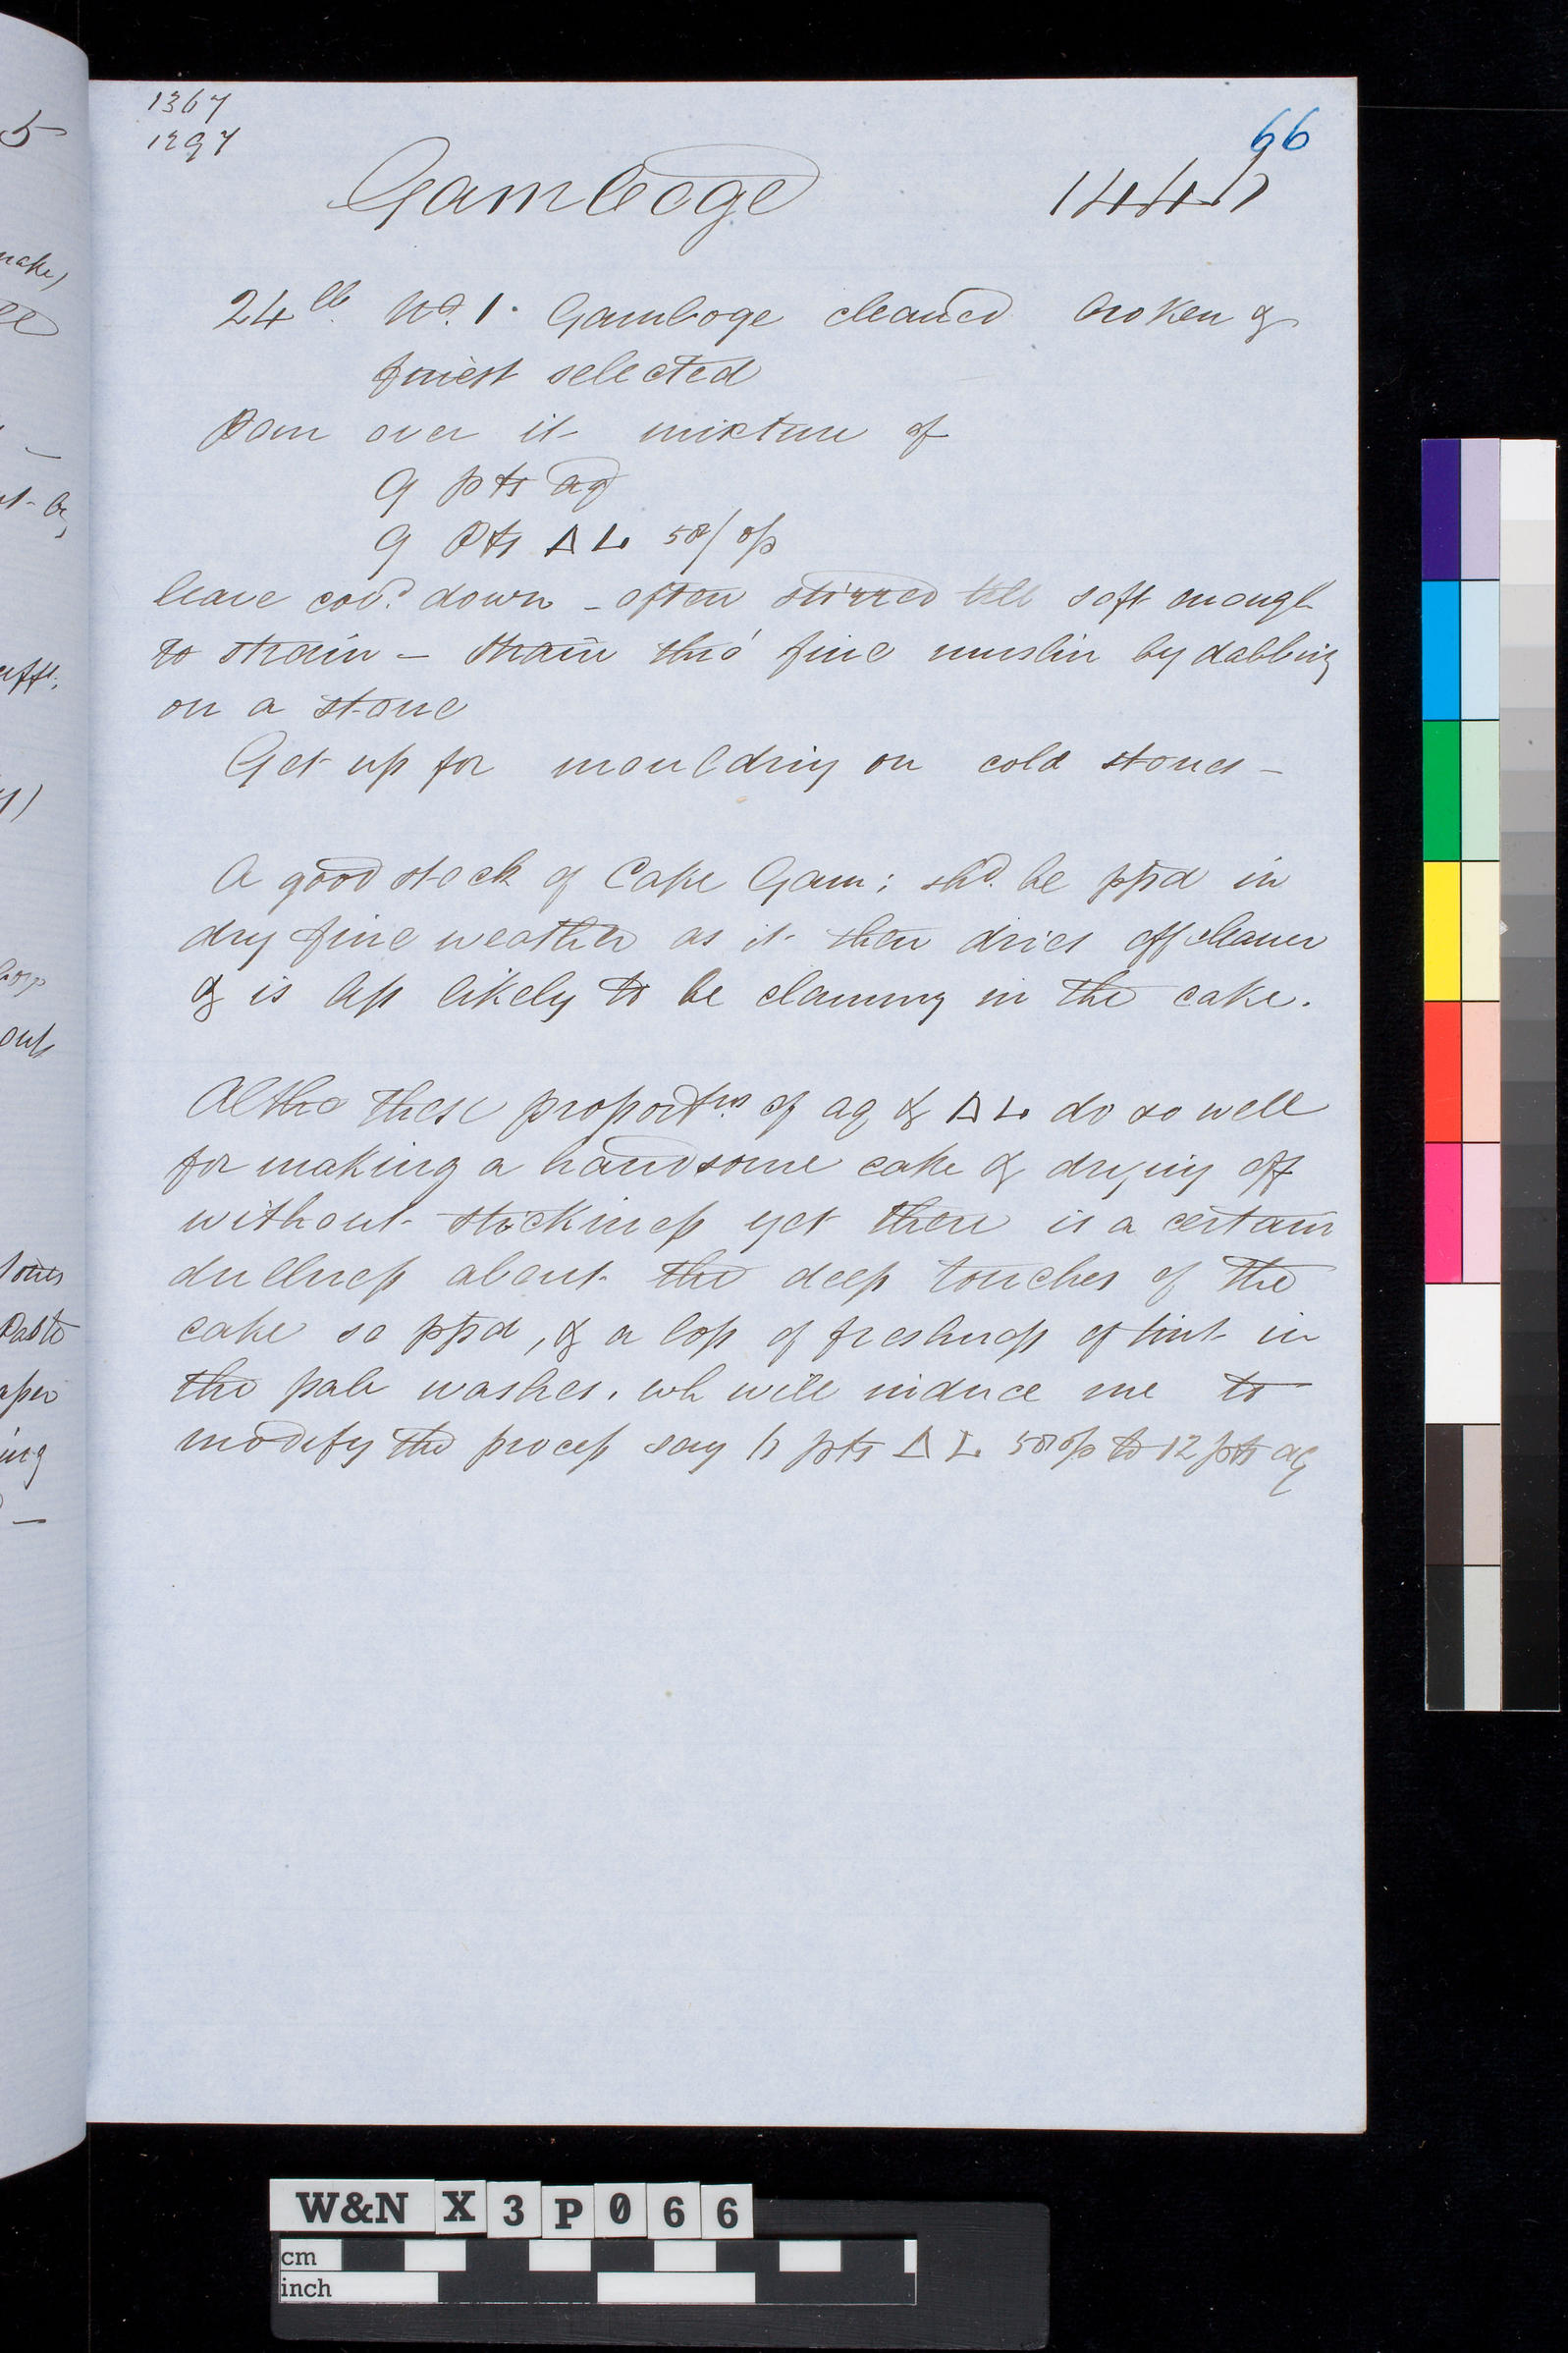 1367
1297
66
Gamboge
24 lb. No. 1. Gamboge cleaned broken &
finest selected
Pour over it mixture of
9 pts aq
9 Pts Δ L. 58/op
leave cov.d down - often stirred till soft enough
to strain - strain thro' fine muslin by dabbing
on a stone
Get up for moulding on cold stones -
A good stock of Cake Gam: shd. be ppd in
dry fine weather as it then dries off cleaner
& is less likely to be clammy in the cake.
Altho these proportns. of aq & Δ L. do so well
for making a handsome cake & drying off
without stickiness yet there is a certain
dullness about the deep touches of the
cake so ppd, & a loss of freshness of tint in
the pale washes. wh will induce me to
modify the process say pts Δ L 58 op to 12 pts aq
W&N X3P066
cm
inch